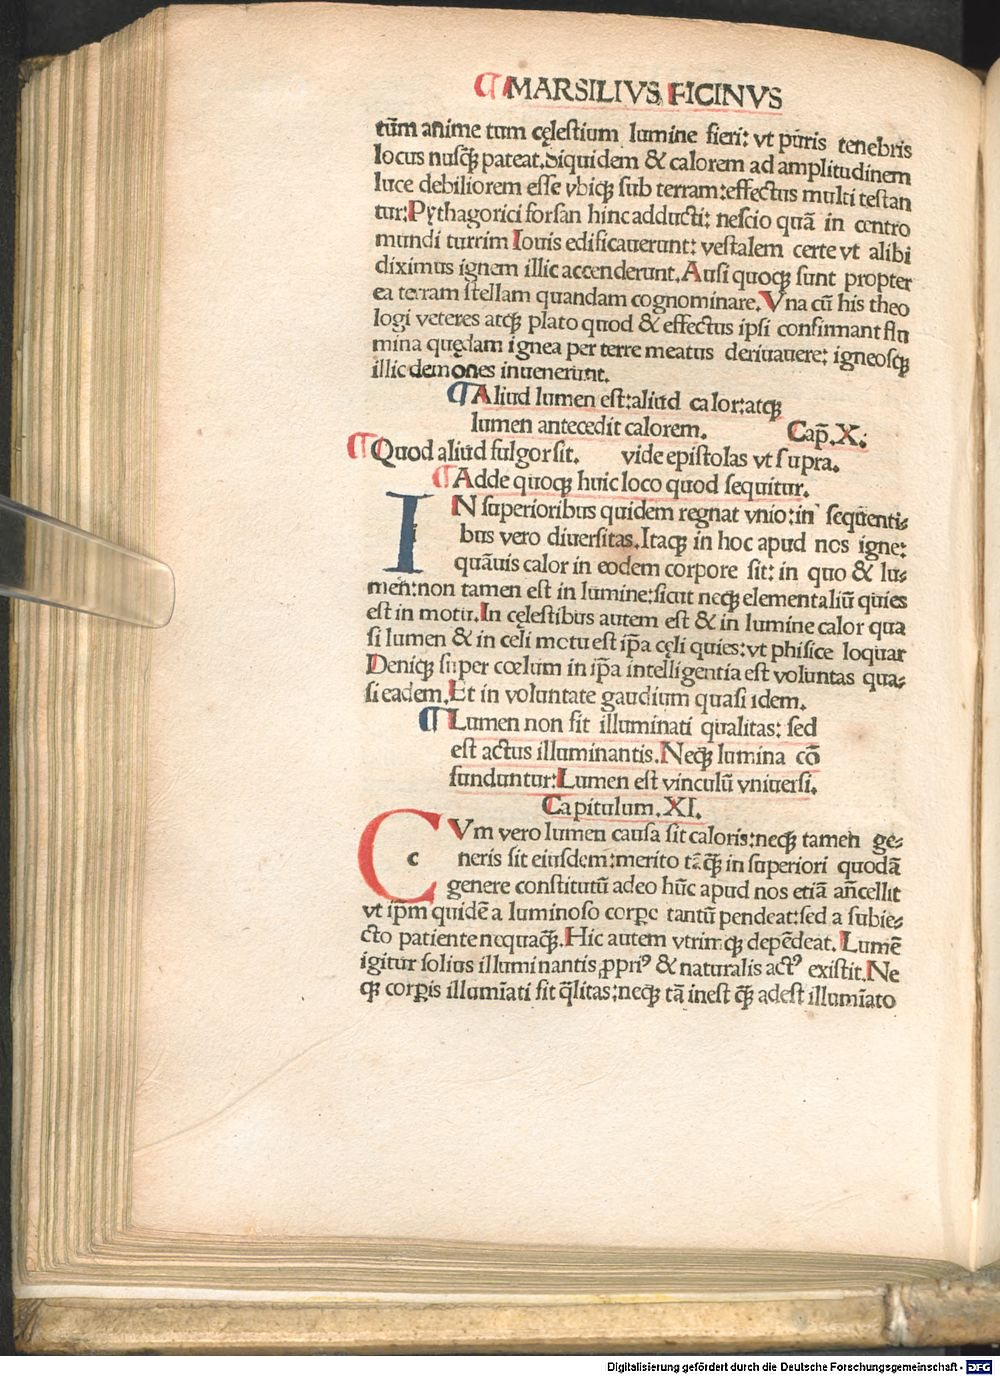 ¶MARSILIVS FICINVS
tũm anime tum cęlestium lumine fieri: vt puris tenebris
locus nusꝗ̃ pateat. Siquidem & calorem ad amplitudinem
luce debiliorem esse vbiqꝫ sub terram: effectus multi testan
tur: Pythagorici forsan hinc adducti: nescio quã in centro
mundi turrim Iouis edificauerunt: vestalem certe vt alibi
diximus ignem illic accenderunt. Ausi quoqꝫ sunt propter
ea terram stellam quandam cognominare. Vna cũ his theo
logi veteres atqꝫ plato quod & effectus ipsi confirmant flu
mina quędam ignea per terre meatus deriuauere: igneosqꝫ
illic demones inuenerunt.
¶Aliud lumen est: aliud calor: atqꝫ
lumen antecedit calorem. Cap̃. X.
¶Quod aliud fulgor sit. vide epistolas vt supra.
¶Adde quoqꝫ huic loco quod sequitur.
IN superioribus quidem regnat vnio: in sequenti⸗
bus vero diuersitas. Itaqꝫ in hoc apud nos igne:
quãuis calor in eodem corpore sit: in quo & lu⸗
men: non tamen est in lumine: sicut neqꝫ elementaliũ quies
est in motu. In cęlestibus autem est & in lumine calor qua
si lumen & in celi motu est ip̃a cęli quies: vt phisice loquar
Deniqꝫ super cœlum in ip̃a intelligentia est voluntas qua⸗
si eadem. Et in voluntate gaudium quasi idem.
¶Lumen non sit illuminati qualitas: sed
est actus illuminantis. Neqꝫ lumina cõ
funduntur: Lumen est vinculũ vniuersi.
Capitulum. XI.
CVm vero lumen causa sit caloris: neqꝫ tamen ge⸗
c neris sit eiusdem: merito tãꝗ̃ in superiori quodã
genere constitutũ adeo hũc apud nos etiã añcellit
vt ip̃m quidẽ a luminoso corꝑe tantũ pendeat: sed a subie⸗
cto patiente nequaꝗ̃. Hic autem vtrimqꝫ depẽdeat. Lumẽ
igitur solius illuminantis ꝓpriꝰ & naturalis actꝰ existit. Ne
qꝫ corꝑis illumĩati sit q̃litas: neqꝫ tã inest ꝗ̃ adest illumĩato
Digitalisierung gefördert durch die Deutsche Forschungsgemeinschaft - DFG